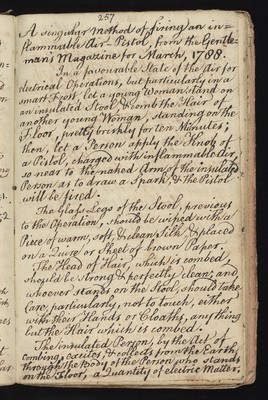 257
A singular Method of firing an in=
flammable Air-Pistol, from the Gentle-
man's Magazine for March, 1788.
In a favourable State of the Air for
electrical Operations, but particularly in a
smart Frost, let a young Woman stand on
an insulated Stool, & comb the Hair of
another young Woman, standing on the
Floor, pretty briskly for ten Minutes;
then, let a Person apply the Knob of
a Pistol, charged with inflammable Air,
so near to the naked Arm of the insulated
Person as to draw a Spark, & the Pistol
will be fired.
The Glass Legs of the Stool, previous
to the Operation, should be wiped with a
Piece of warm, soft & clean Silk, & placed
on a Quire or Sheet of brown Paper.
The Head of Hair, which is combed,
should be strong & perfectly clean; and
whoever stands on the Stool, should take
Care, particularly, not to touch, either
with her Hands or Cloaths, any thing
but the Hair which is combed.
The insulated Person, by the Act of
Combing, excites, & collects from the Earth,
through the Body of the Person who stands
on the Floor, a Quantity of electric Matter,